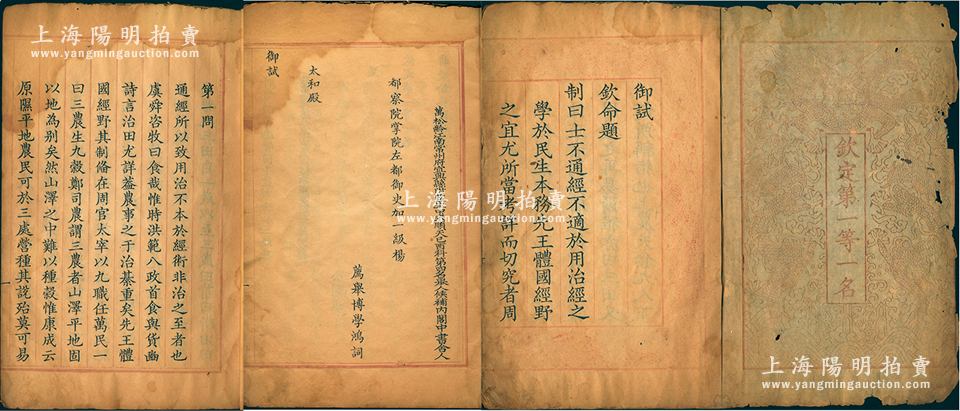 欽定第一等一名
御試
欽命題
制曰士不通經不適於用治經之
學於民生本務先王體國經野
之宜尤所當考詳而切究者周
萬舉博學鴻詞
都察院掌院左都御史加一級楊
太和殿
御試
第一問
通經所以致用治不本於經術非治之至者也
虞舜咨牧曰食哉惟時洪範八政首食與貨豳
詩言治田尤詳蓋農事之于治綦重矣先王體
國經野其制備在周官太宰以九職任萬民一
曰三農生九穀鄭司農謂三農者山澤平地固
以地為别矣然山澤之中難以種穀惟康成云
原隰平地農民可於三處營種其說殆莫可易
上海陽明拍賣
www.yangmingauction.com
上海陽明拍賣
www.yangmingauction.com
上海陽明拍賣
www.yangmingauction.com